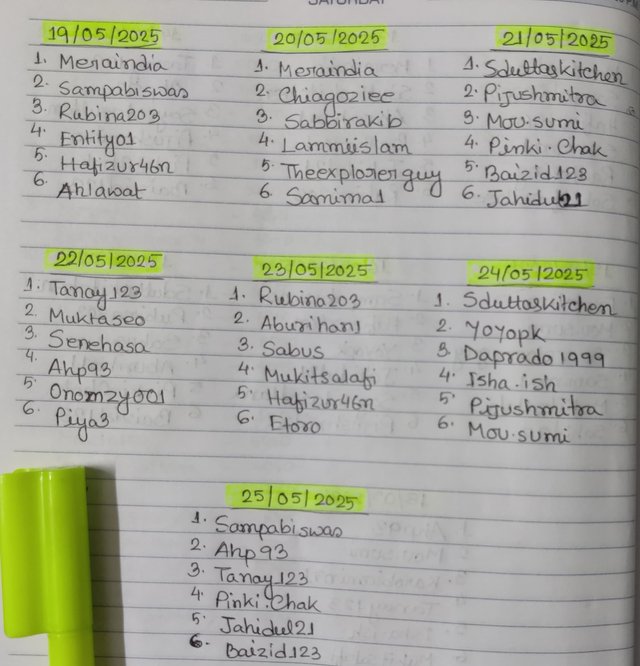 SATURDAY
19/05/2025
1. Meraindia
2. Sampabiswas
3. Rubina203
4. Entity01
5. Hafizur46n
6. Ahlawat
20/05/2025
1. Meraindia
2. Chiagoziee
3. Sabbirakib
4. Lammiislam
5. Theexplorerguy
6. Samima1
21/05/2025
1. Sduttaskitchen
2. Pijushmitra
3. Mou.sumi
4. Pinki.Chak
5. Baizid123
6. Jahidul21
22/05/2025
1. Tanay123
2. Muktaseo
3. Senehasa
4. Ahp93
5. Onomzy001
6. Piya3
23/05/2025
1. Rubina203
2. Aburihan1
3. Sabus
4. Mukitsalafi
5. Hafizur46n
6. Etoro
24/05/2025
1. Sduttaskitchen
2. Yoyopk
3. Daprado1999
4. Isha.ish
5. Pijushmitra
6. Mou.sumi
25/05/2025
1. Sampabiswas
2. Ahp93
3. Tanay123
4. Pinki.Chak
5. Jahidul21
6. Baizid123